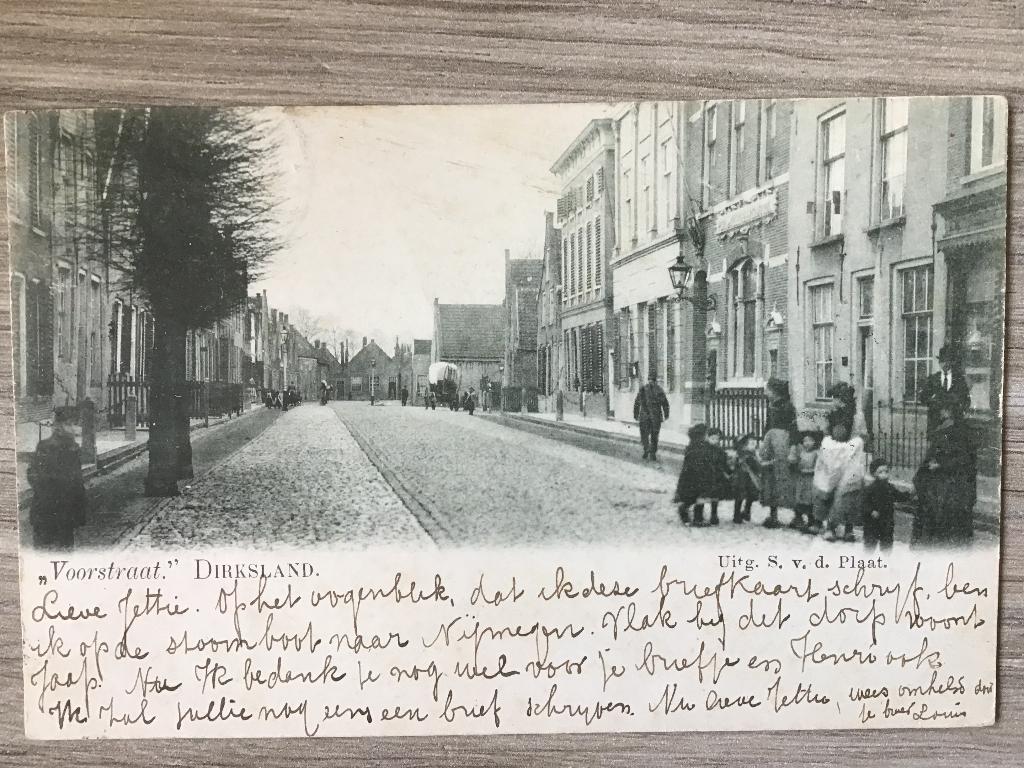 „Voorstraat.” DIRKSLAND.
Uitg. S. v. d. Plaat.
Lieve Jettie. Op het oogenblik, dat ik deze briefkaart schrijf, ben
ik op de stoomboot naar Nijmegen. Vlak bij dit dorp woont
Jaap. Nu Ik bedank je nog wel voor je briefje en Henri ook
Ik zal jullie nog eens een brief schryven. Nu lieve Jettie, wees omhelsd door
je broer Louis